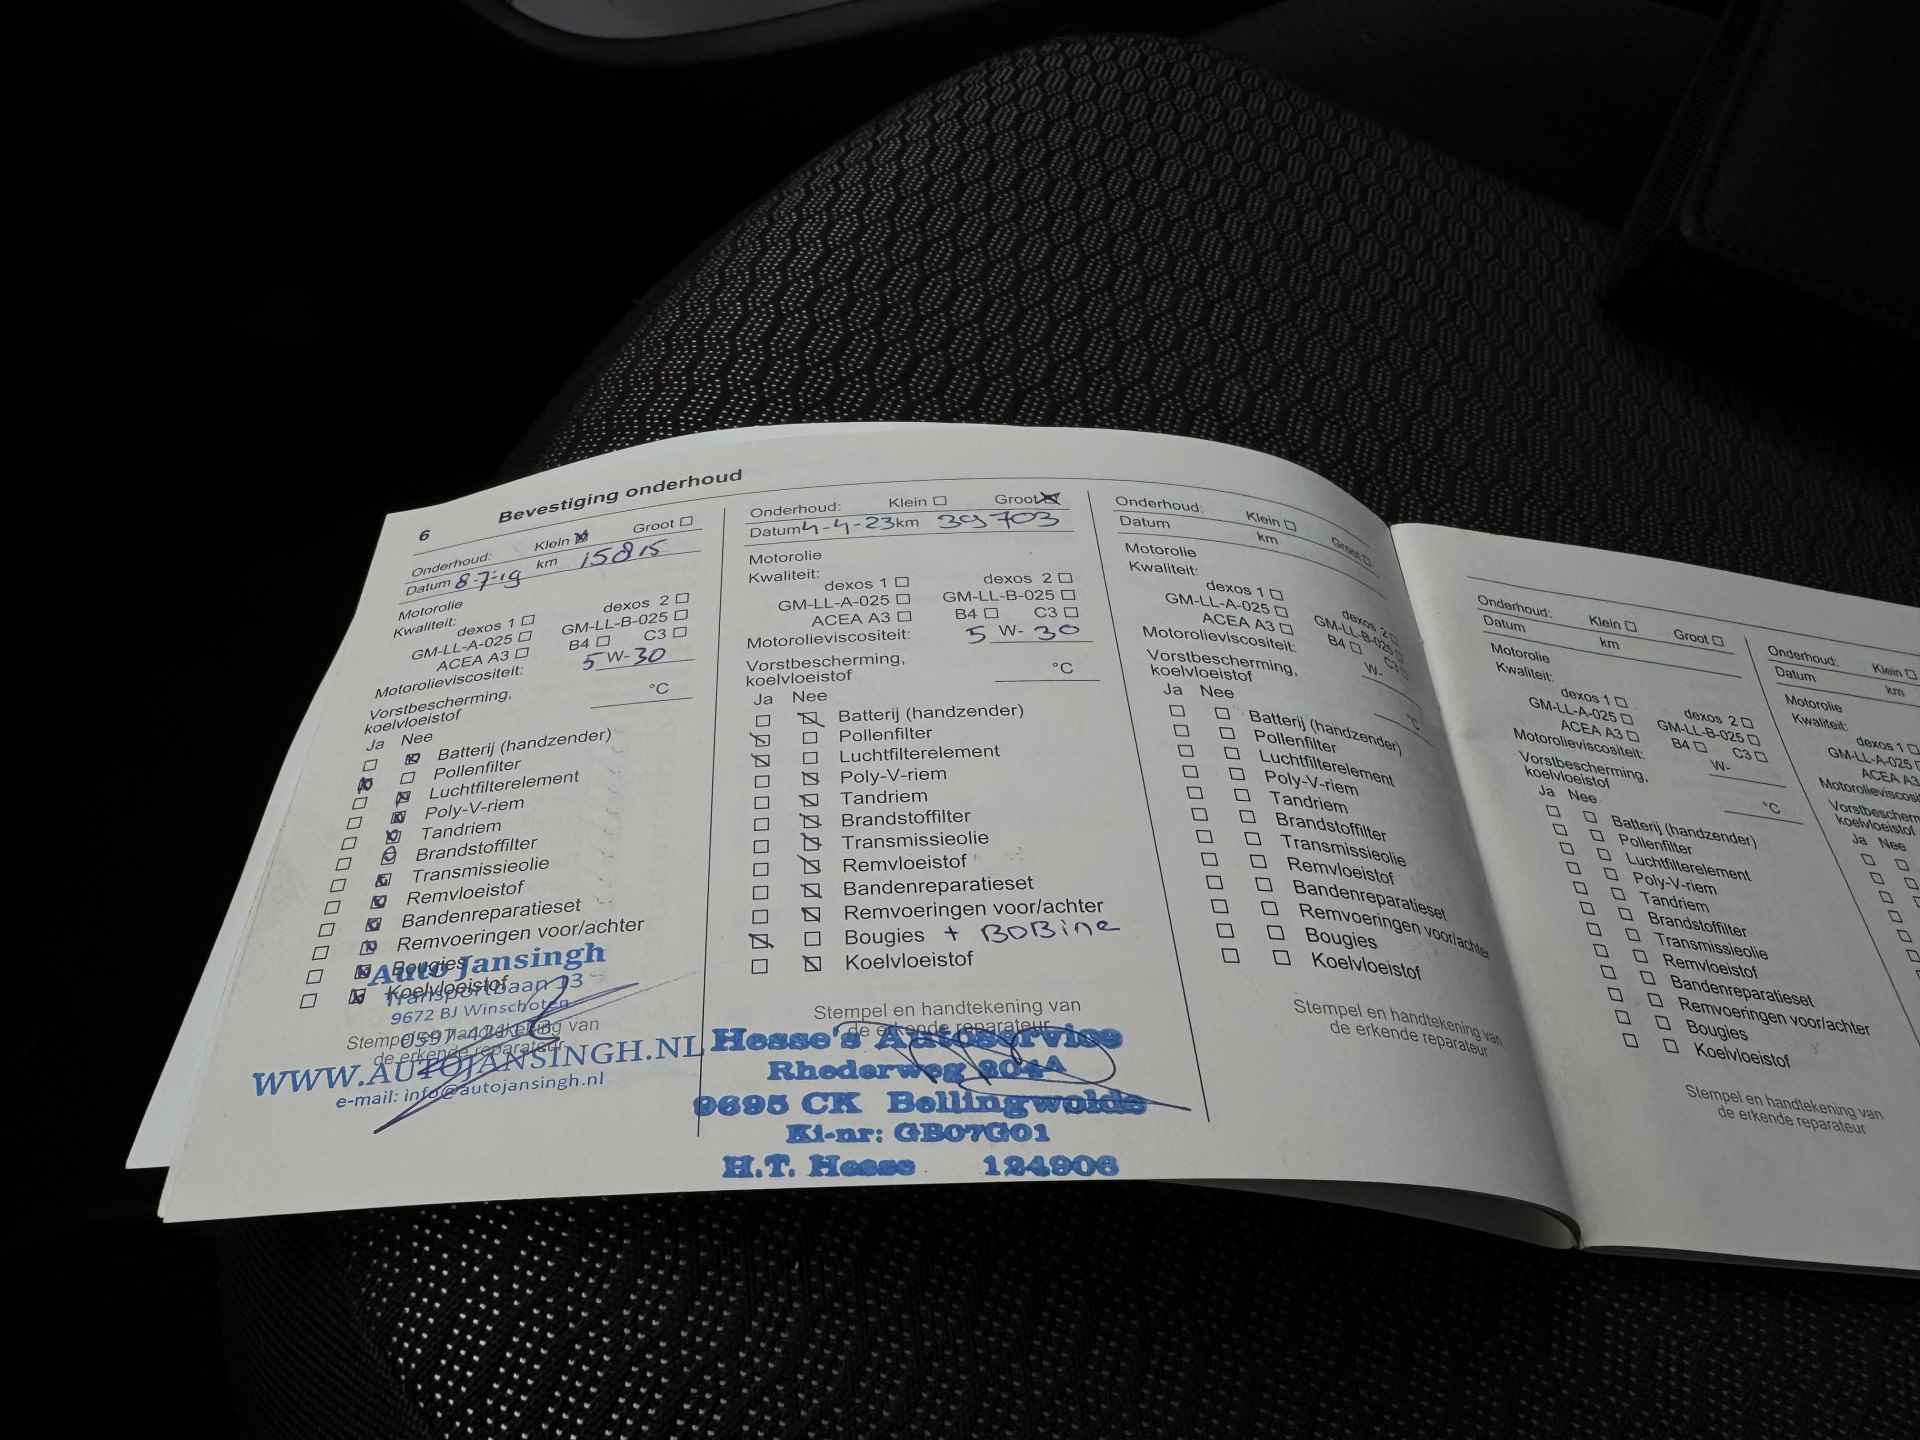 6 Bevestiging onderhoud
Onderhoud: Klein Groot
Datum 8-7-19 km 15815
Motorolie
Kwaliteit:
dexos 1 dexos 2
GM-LL-A-025 GM-LL-B-025
ACEA A3 B4 C3
Motorolieviscositeit: 5 W-30
Vorstbescherming,
koelvloeistof °C
Ja Nee
Batterij (handzender)
Pollenfilter
Luchtfilterelement
Poly-V-riem
Tandriem
Brandstoffilter
Transmissieolie
Remvloeistof
Bandenreparatieset
Remvoeringen voor/achter
Bougies
Koelvloeistof
Stempel en handtekening van
de erkende reparateur
Auto Jansingh
Transportbaan 13
9672 BJ Winschoten
WWW.AUTOJANSINGH.NL
e-mail: info@autojansingh.nl
Onderhoud: Klein Groot
Datum 4-4-23 km 39703
Motorolie
Kwaliteit:
dexos 1 dexos 2
GM-LL-A-025 GM-LL-B-025
ACEA A3 B4 C3
Motorolieviscositeit: 5 W- 30
Vorstbescherming,
koelvloeistof °C
Ja Nee
Batterij (handzender)
Pollenfilter
Luchtfilterelement
Poly-V-riem
Tandriem
Brandstoffilter
Transmissieolie
Remvloeistof
Bandenreparatieset
Remvoeringen voor/achter
Bougies + BOBine
Koelvloeistof
Stempel en handtekening van
de erkende reparateur
Hesse's Autoservise
Rhederweg 204A
9695 CK Bellingwolde
Ki-nr: GB07G01
H.T. Hesse 124906
Onderhoud: Klein Groot
Datum km
Motorolie
Kwaliteit:
dexos 1 dexos 2
GM-LL-A-025 GM-LL-B-025
ACEA A3 B4 C3
Motorolieviscositeit: W-
Vorstbescherming,
koelvloeistof °C
Ja Nee
Batterij (handzender)
Pollenfilter
Luchtfilterelement
Poly-V-riem
Tandriem
Brandstoffilter
Transmissieolie
Remvloeistof
Bandenreparatieset
Remvoeringen voor/achter
Bougies
Koelvloeistof
Stempel en handtekening van
de erkende reparateur
Onderhoud: Klein Groot
Datum km
Motorolie
Kwaliteit:
dexos 1 dexos 2
GM-LL-A-025 GM-LL-B-025
ACEA A3 B4 C3
Motorolieviscositeit: W-
Vorstbescherming,
koelvloeistof °C
Ja Nee
Batterij (handzender)
Pollenfilter
Luchtfilterelement
Poly-V-riem
Tandriem
Brandstoffilter
Transmissieolie
Remvloeistof
Bandenreparatieset
Remvoeringen voor/achter
Bougies
Koelvloeistof
Stempel en handtekening van
de erkende reparateur
Onderhoud: Klein
Datum km
Motorolie
Kwaliteit:
dexos 1
GM-LL-A-025
ACEA A3
koelvloeistof
Ja Nee